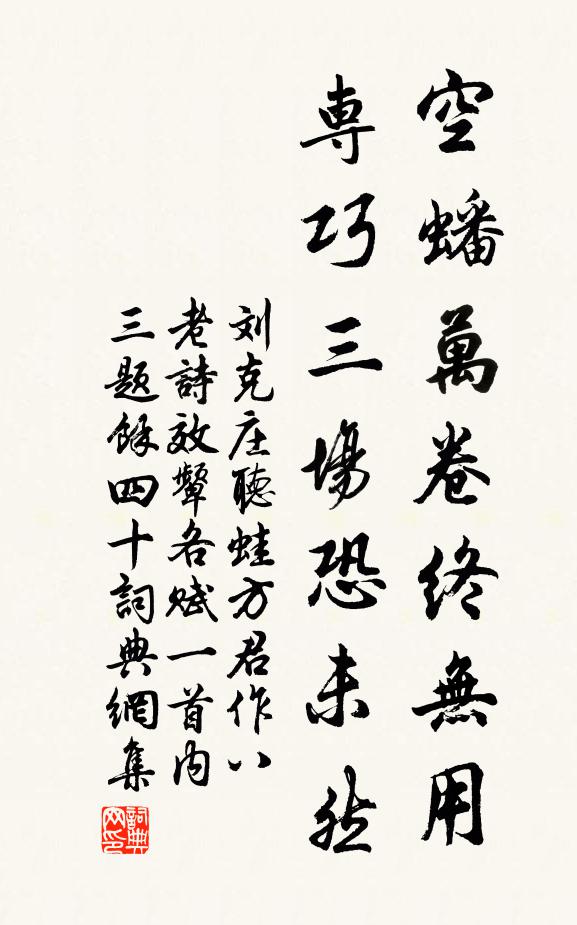 空蟠萬卷終無用
専巧三場恐未然
刘克庄聽蛙方君作八
老詩效颦各賦一首内
三題餘四十詞典網集
詞典网印